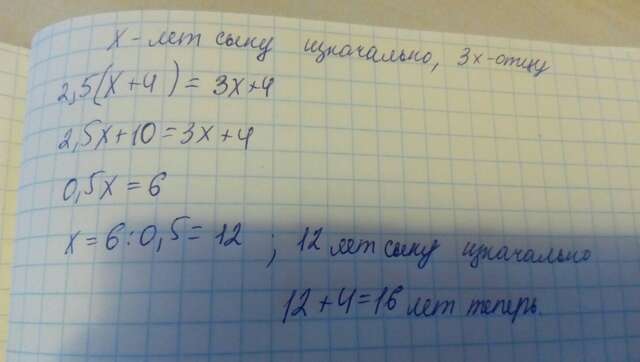 x - лет сыну изначально, 3x - отцу
2,5(x+4) = 3x+4
2,5x+10=3x+4
0,5x = 6
x = 6:0,5 = 12 ; 12 лет сыну изначально
12+4=16 лет теперь.